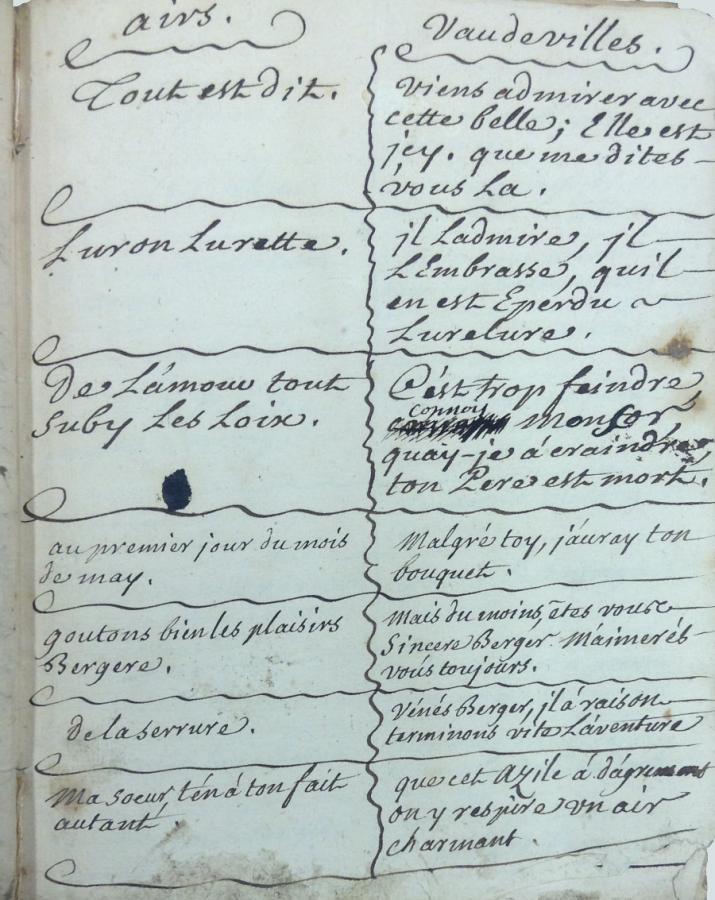 airs.
Vaudevilles.
Tout est dit.
Viens admirer avec
cette belle; Elle est
jcy. que me dites-
vous La.
Luron Lurette.
jl Ladmire, jl
L'Embrasse, quil
en est Eperdu
Lurelure.
De L'ámour tout
Suby Les Loix.
C'est trop feindre
Connois monsor,
quay-je á craindre,
ton Pere est mort.
au premier jour du mois
de may.
Malgré toy, j'áuray ton
bouquet.
goutons bien les plaisirs
Bergere.
Mais du moins, étes vous
Sincere Berger. M'aimerés-
voús toujours.
de la serrure.
Vénés Berger, jl á raison
terminons vite L'áventure
Ma soeur, t'en á ton fait
autant.
que cet Azile á d'ágrement
on y respire vn air
charmant.